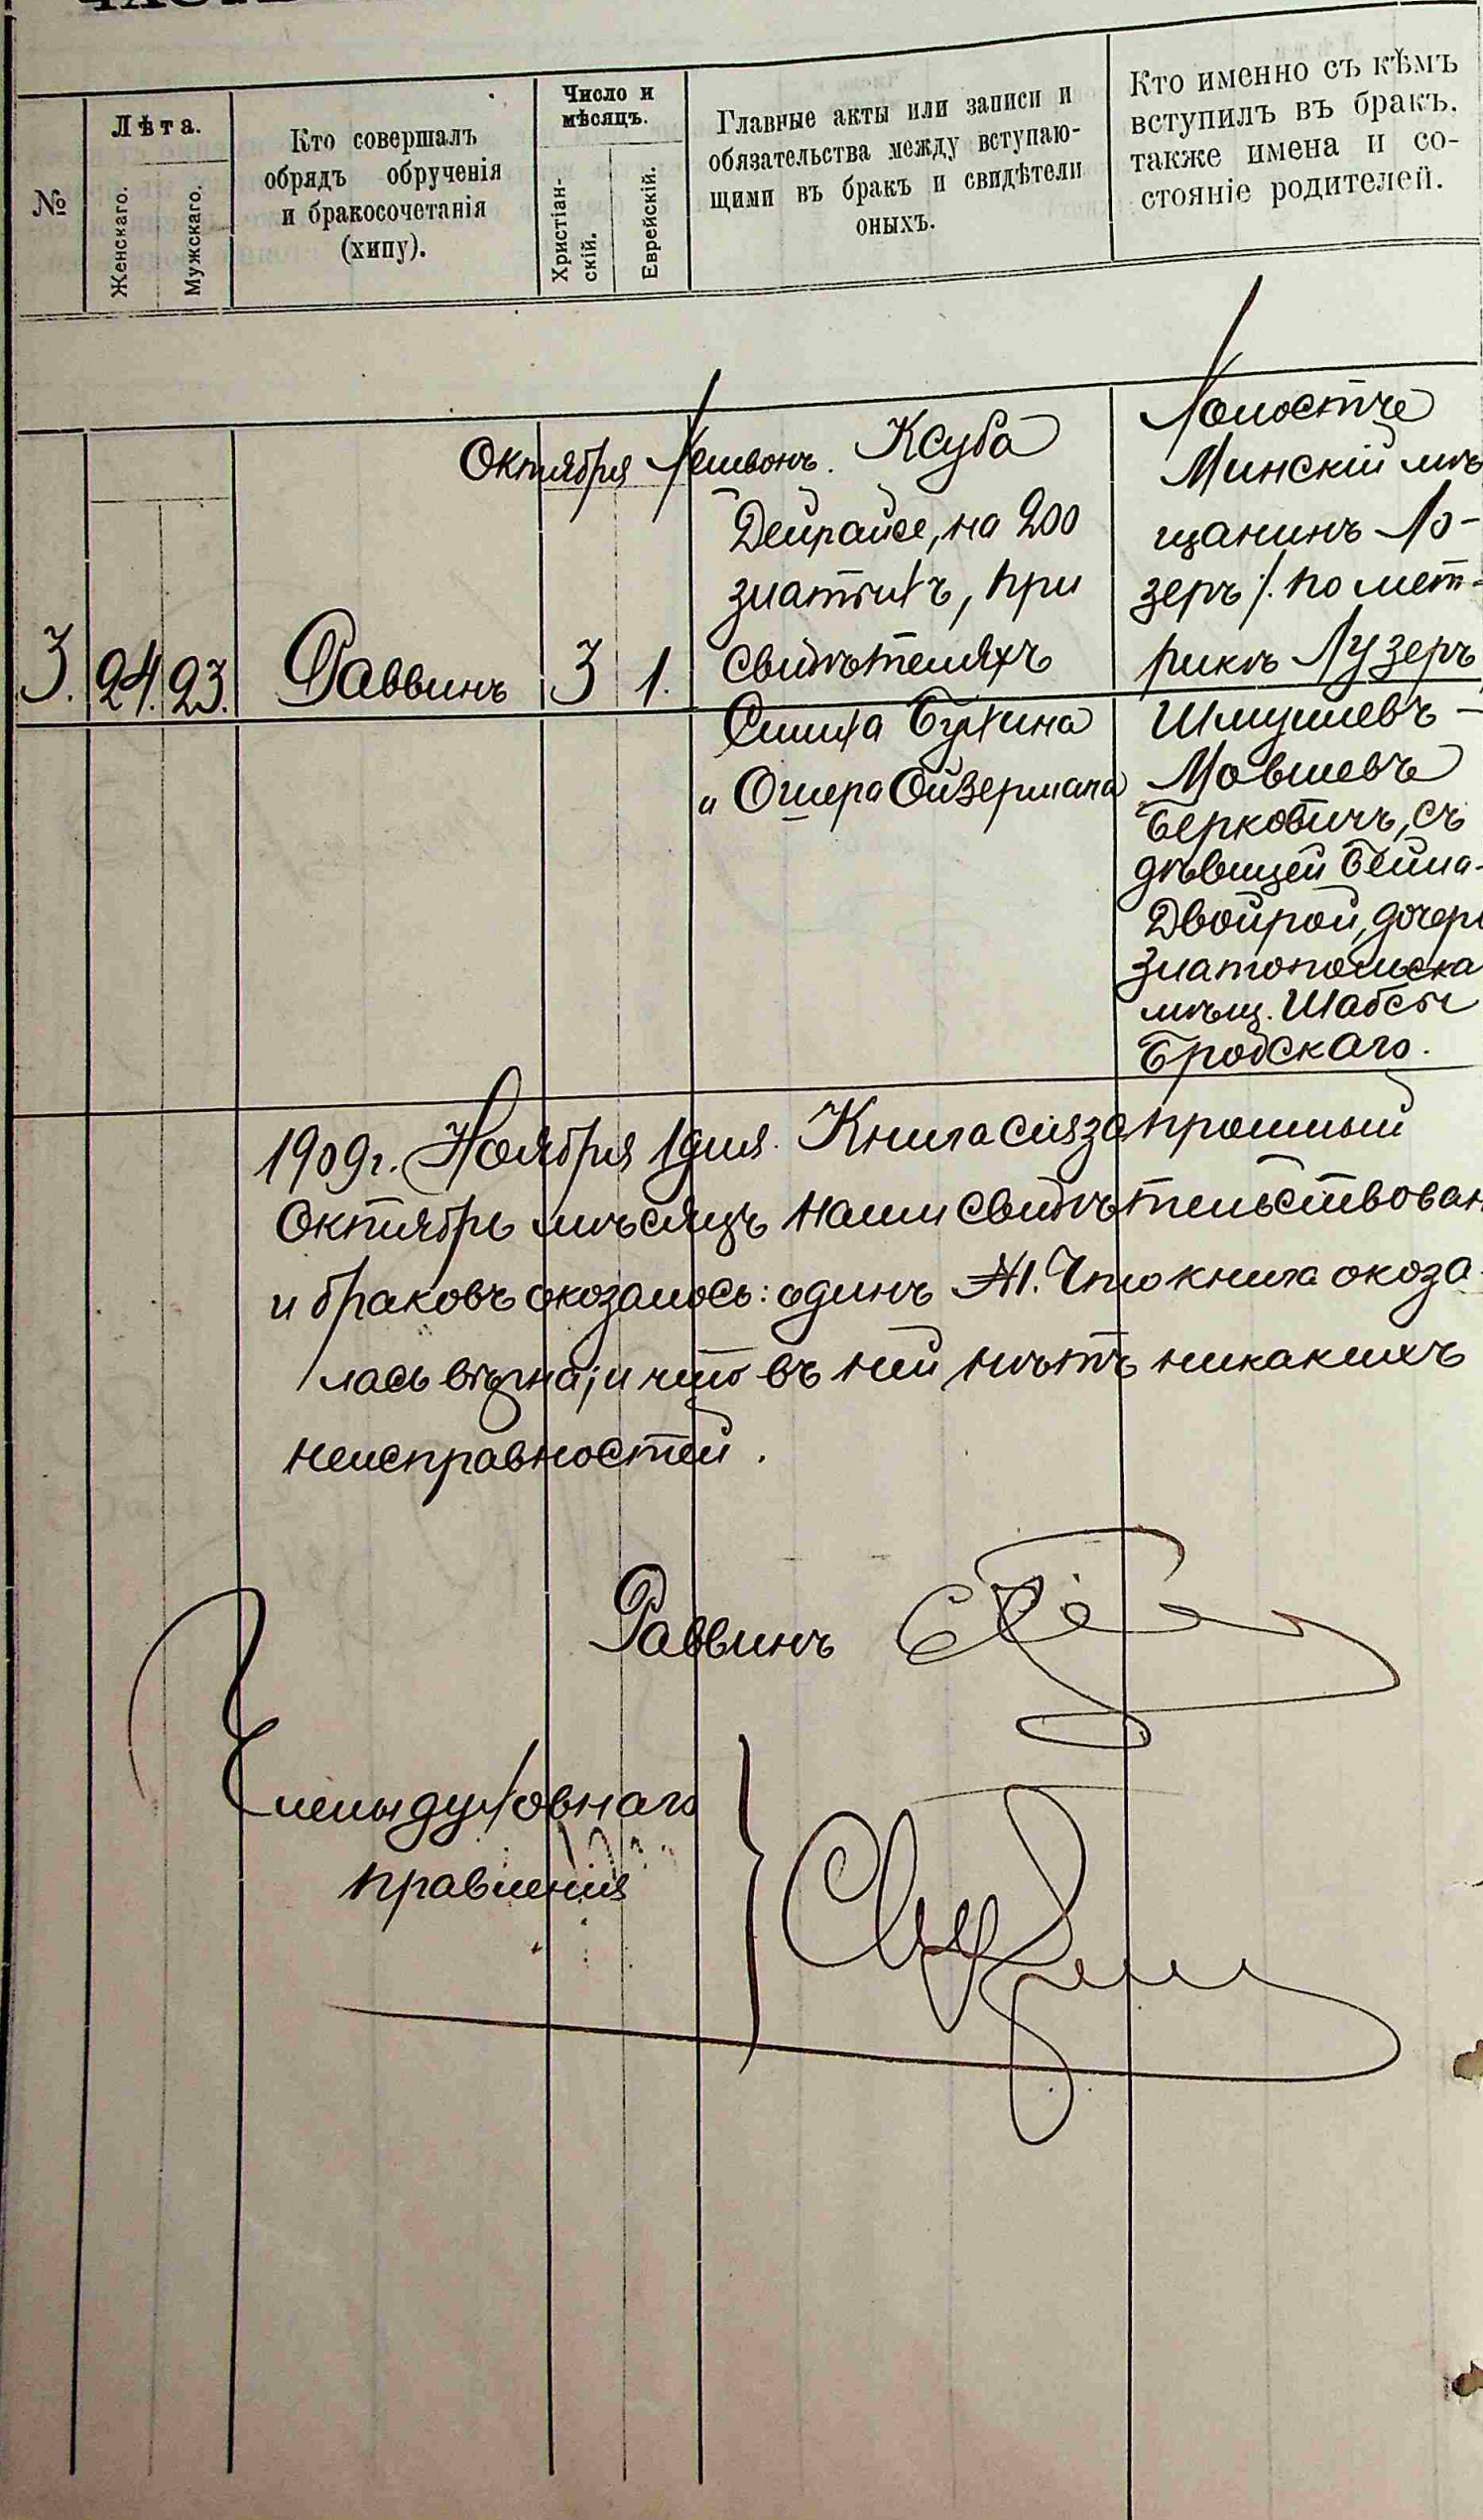 №
Лѣта.
Женскаго.
Мужскаго.
Кто совершалъ
обрядъ обрученія
и бракосочетанія
(хипу).
Число и
мѣсяцъ.
Христіан-
скій.
Еврейскій.
Главные акты или записи и
обязательства между вступаю-
щими въ бракъ и свидѣтели
оныхъ.
Кто именно съ кѣмъ
вступилъ въ бракъ,
также имена и со-
стояніе родителей.
Октября Хешвонъ.
3. 24. 23. Раввинъ 3 1.
Ксуба
Дейрайсе, на 200
златыхъ, при
свидѣтеляхъ
Симха Бухина
и Ошера Ойзермана
Холостче
Минскій мѣ
щанинъ Ло-
зеръ /. по мет-
рикѣ Лузеръ
Шмуилевъ -
Мовшевъ
Берковичъ, съ
дѣвицей Бейла-
Двойрой, дочерь
Златопольска
мѣщ. Шабсы
Бродскаго.
1909 г. Ноября 1 дня. Книга сія за прошлый
Октябрь мѣсяцъ нами свидѣтельствован
и браковъ оказалось: одинъ №1. Что книга оказа-
лась вѣрна; и что въ ней нѣтъ никакихъ
неисправностей.
Раввинъ
Члены духовнаго
правленія